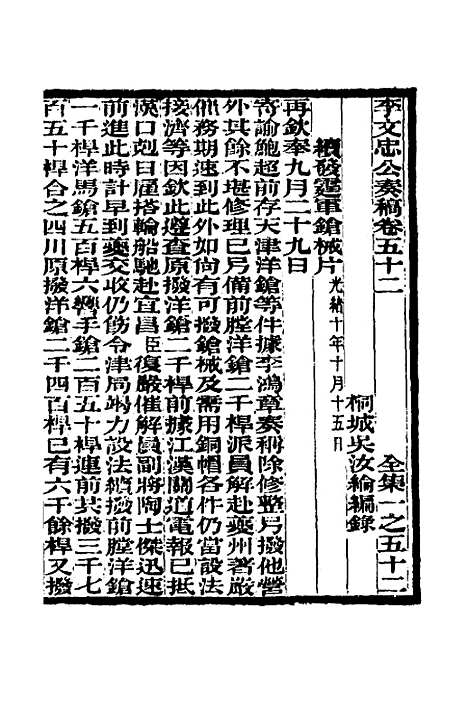 李文忠公奏稿卷五十二
全集一之五十二
桐城吳汝綸編錄
續發霆軍鎗械片
光緒十年十月十五日
再欽奉九月二十九日
寄諭鮑超前存天津洋鎗等件據李鴻章奏稱除修整另撥他營
外其餘不堪修理已另備前膛洋鎗二千桿派員解赴夔州著嚴
催務期速到此外如尚有可撥鎗械及需用銅帽各件仍當設法
接濟等因欽此遵查原撥洋鎗二千桿前據江漢關道電報已抵
漢口剋日雇搭輪船馳赴宜昌臣復嚴催解員副將陶士傑迅速
前進此時計早到夔交收仍飭令津局竭力設法續撥前膛洋鎗
一千桿洋馬鎗五百桿六響手鎗二百五十桿連前共撥三千七
百五十桿合之四川原撥洋鎗二千四百桿已有六千餘桿又撥